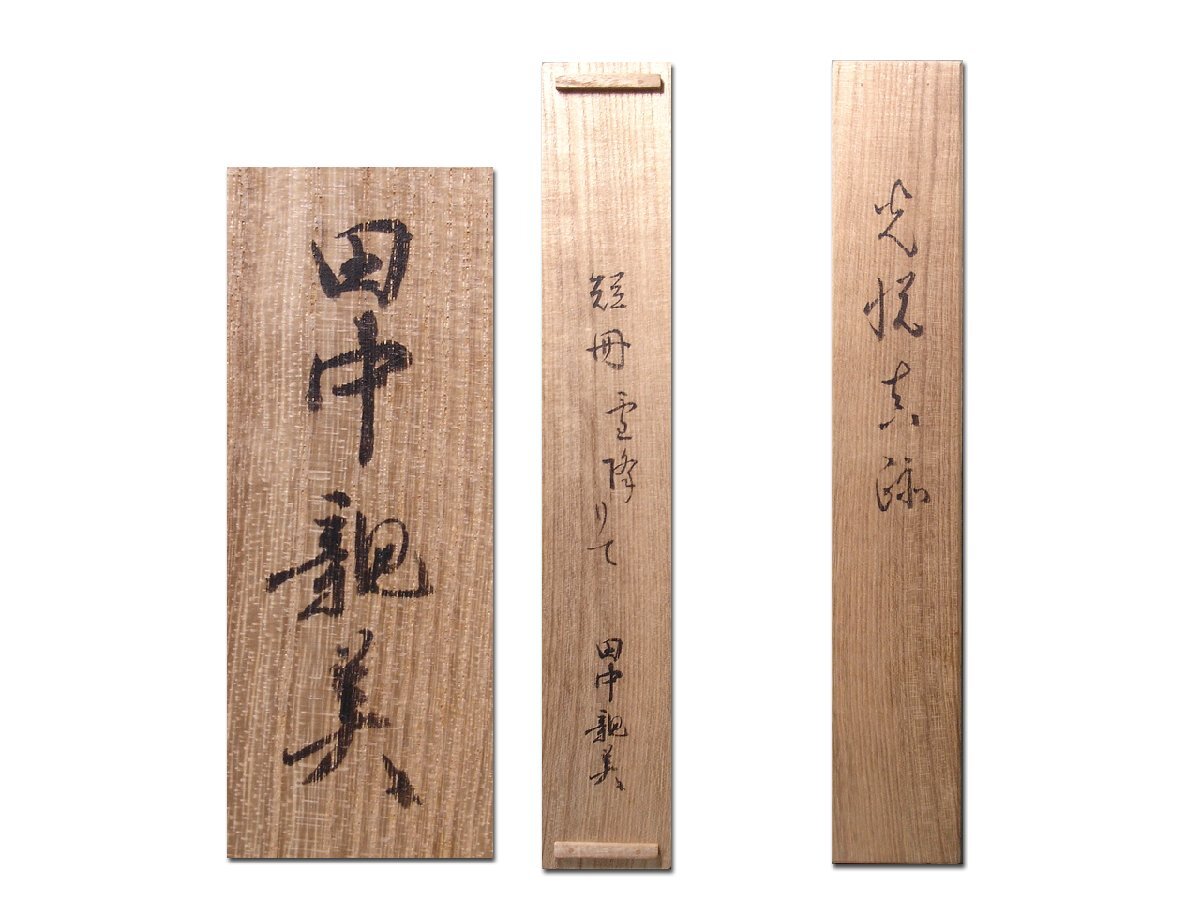 光悦真蹟
短冊 雪降りて
田中親美
田中親美